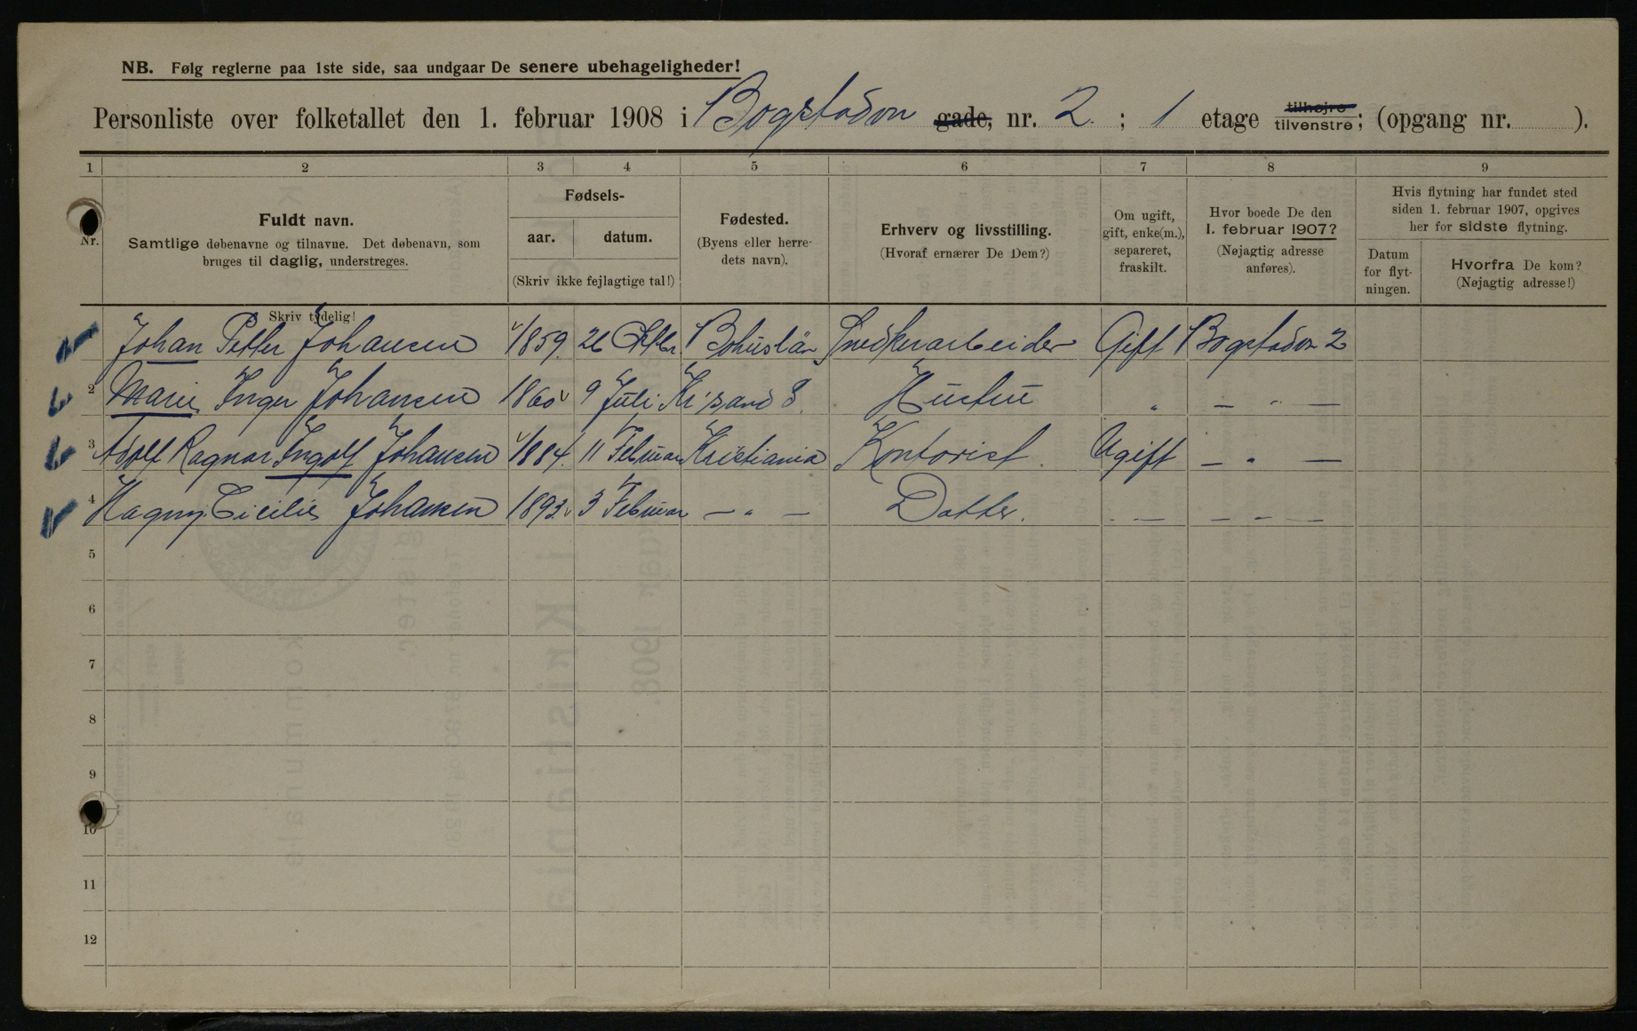 NB. Følg reglerne paa 1ste side, saa undgaar De senere ubehageligheder!
Personliste over folketallet den 1. februar 1908 i Bogstadvn gade, nr. 2. ; 1 etage tilhøjre tilvenstre; (opgang nr. ).
1 2 3 4 5 6 7 8 9
Nr.
Fuldt navn.
Samtlige døbenavne og tilnavne. Det døbenavn, som
bruges til daglig, understreges.
Skriv tydelig!
Fødsels-
aar. datum.
(Skriv ikke fejlagtige tal!)
Fødested.
(Byens eller herre-
dets navn).
Erhverv og livsstilling.
(Hvoraf ernærer De Dem?)
Om ugift,
gift, enke(m.),
separeret,
fraskilt.
Hvor boede De den
1. februar 1907?
(Nøjagtig adresse
anføres).
Hvis flytning har fundet sted
siden 1. februar 1907, opgives
her for sidste flytning.
Datum
for flyt-
ningen.
Hvorfra De kom?
(Nøjagtig adresse!)
Johan Petter Johansen 1859. 26 Bohuslän Snedkerarbeider Gift Bogstadvn 2
2 Marie Inger Johansen 1860 9 Juli Kr'sand S. Hustru " — " —
3 Adolf Ragnar Ingolf Johansen 1884. 11 Februar Kristiania Kontorist. Ugift — " —
4 Hagny Cicilie Johansen 1893. 3 Februar — " — Datter. . — — — —
5
6
7
8
9
10
11
12